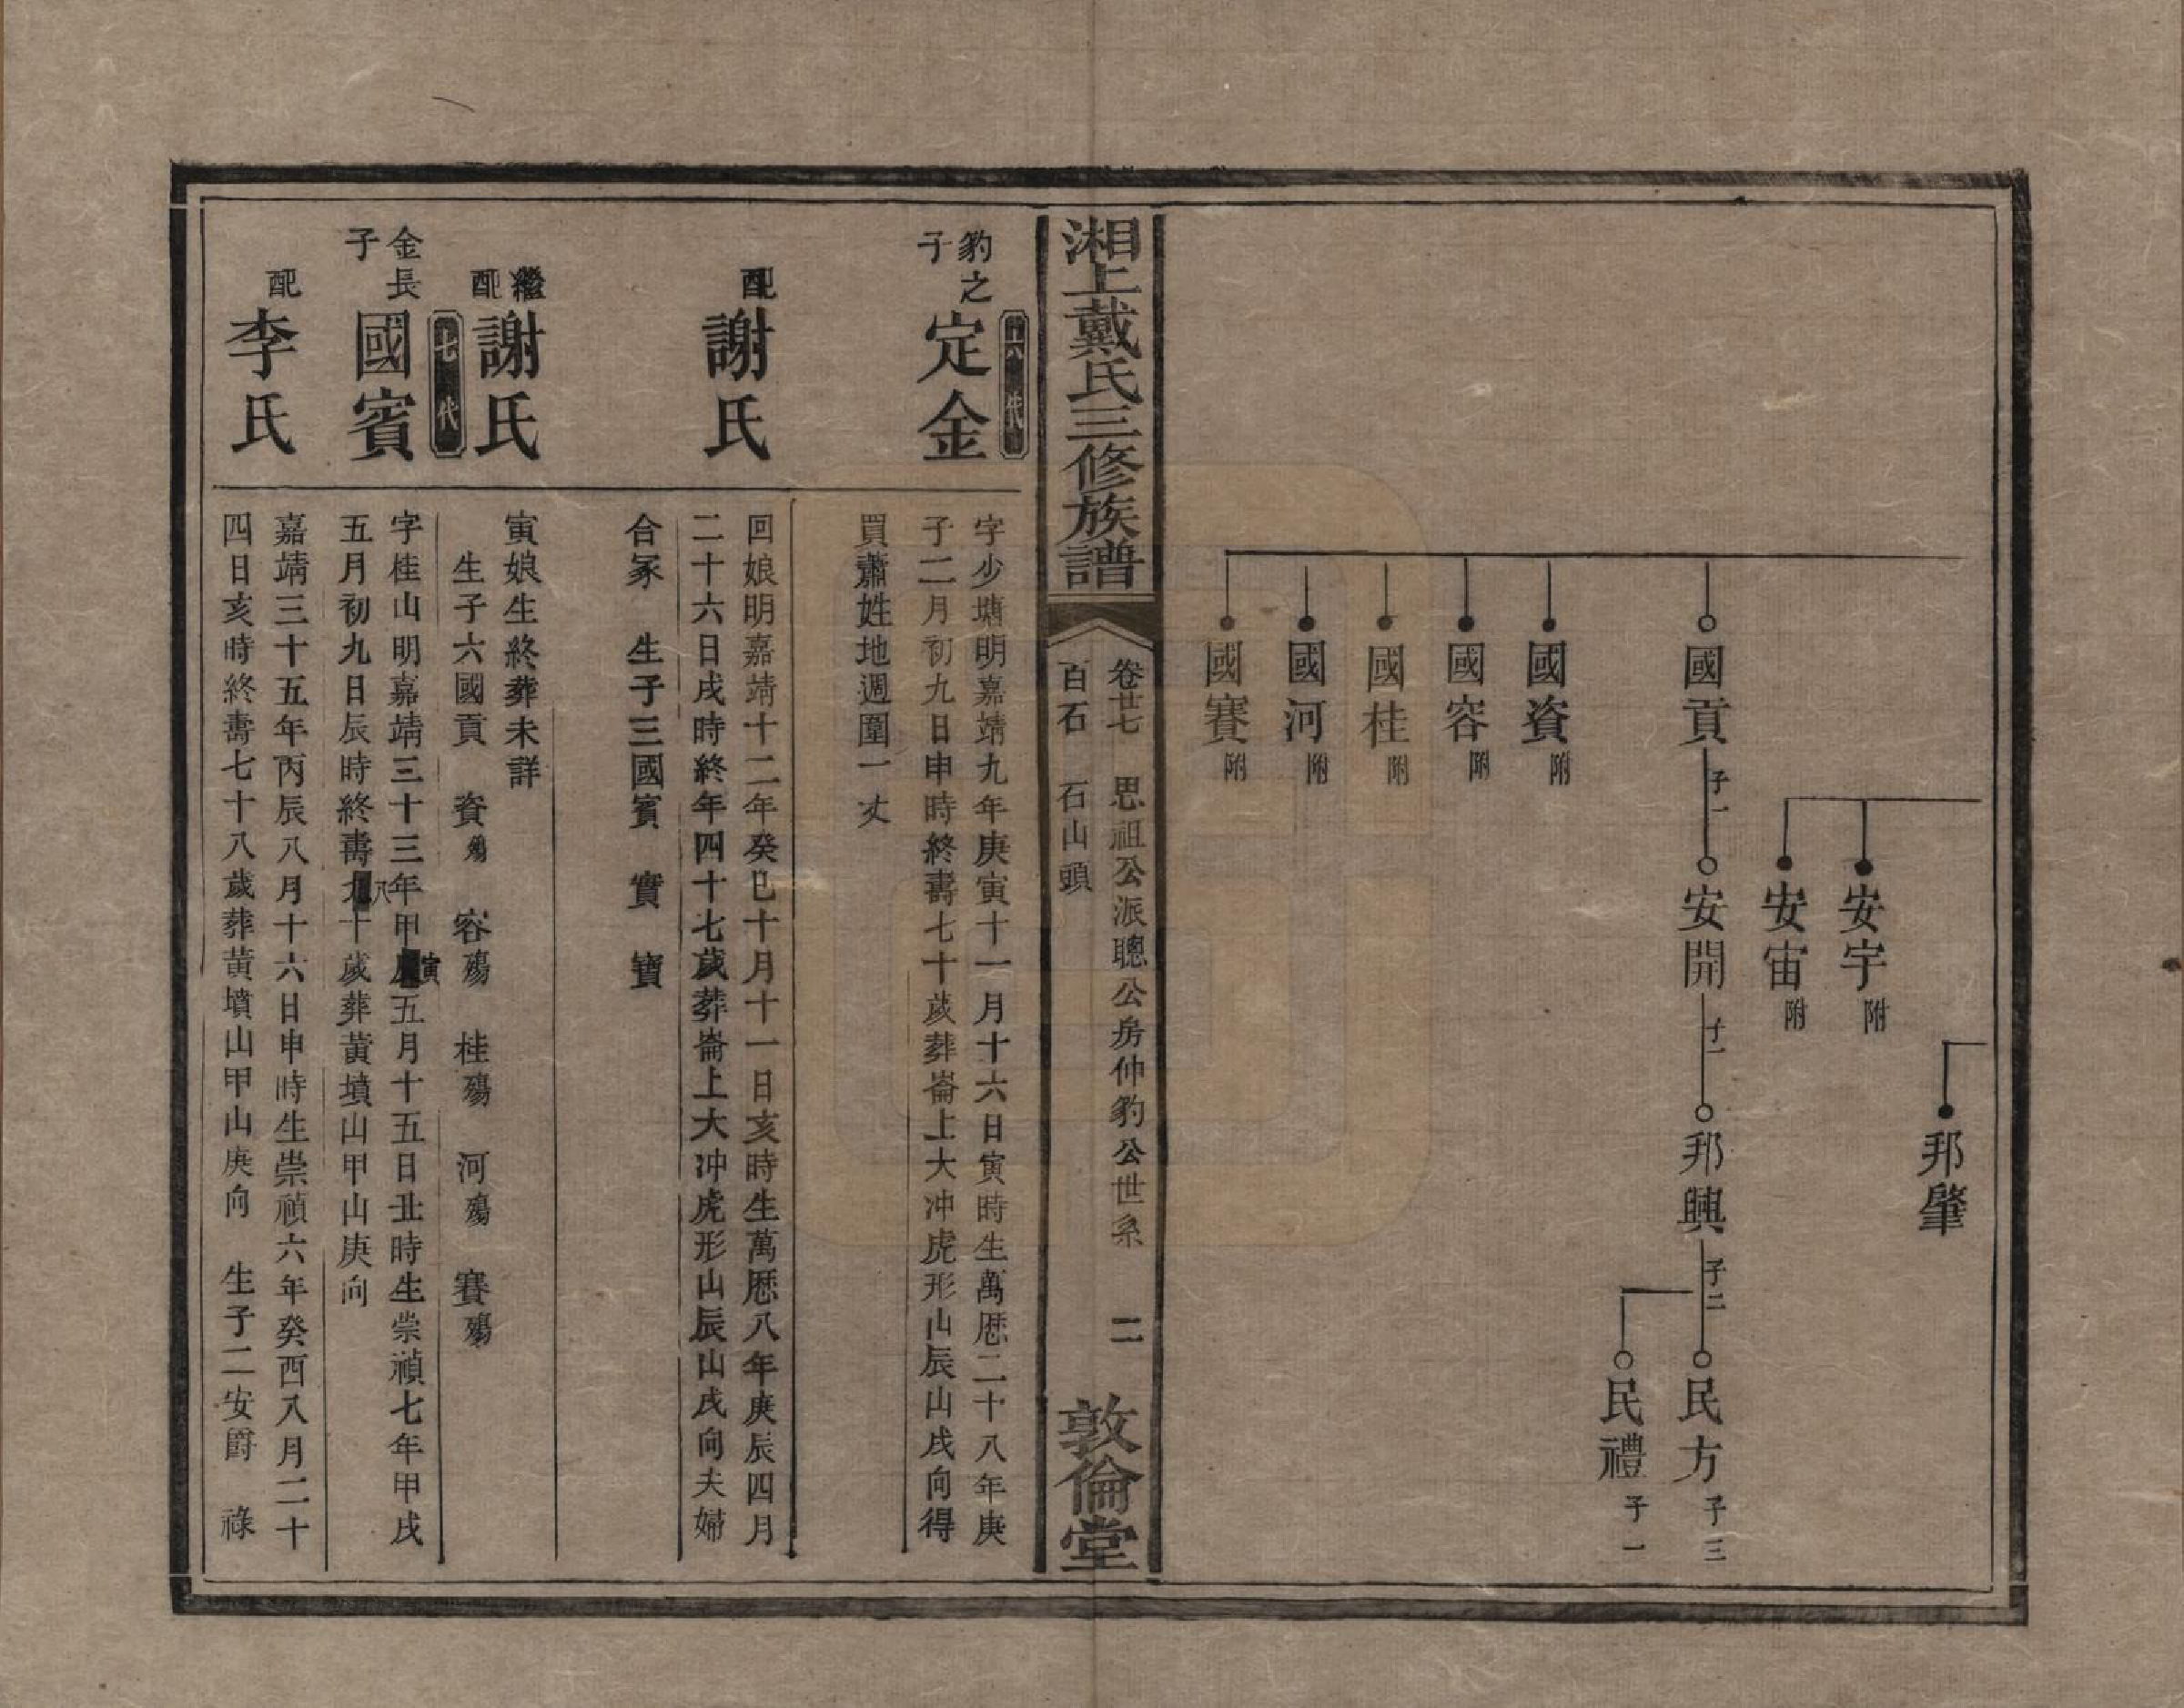 邦肇
安宇附
安宙附
國貢 子一
安開 子一
邦興 子二
民方 子三
民禮 子一
國資附
國容附
國桂附
國河附
國賽附
湘上戴氏三修族譜
卷廿七 思祖公派聰公房仲豹公世系 二
百石 石山頭
敦倫堂
六代
豹之子
定金
字少塘明嘉靖九年庚寅十一月十六日寅時生萬厯二十八年庚
子二月初九日申時終壽七十歲葬崙上大冲虎形山辰山戌向得
買蕭姓地週圍一丈
配
謝氏
回娘明嘉靖十二年癸巳十月十一日亥時生萬厯八年庚辰四月
二十六日戌時終年四十七歲葬崙上大冲虎形山辰山戌向夫婦
合冢 生子三國賓 實 寶
繼配
謝氏
寅娘生終葬未詳
生子六國貢 資殤 容殤 桂殤 河殤 賽殤
七代
金長子
國賓
字桂山明嘉靖三十三年甲寅五月十五日丑時生崇禎七年甲戌
五月初九日辰時終壽八十歲葬黃墳山甲山庚向
配
李氏
嘉靖三十五年丙辰八月十六日申時生崇禎六年癸酉八月二十
四日亥時終壽七十八歲葬黃墳山甲山庚向 生子二安爵 祿